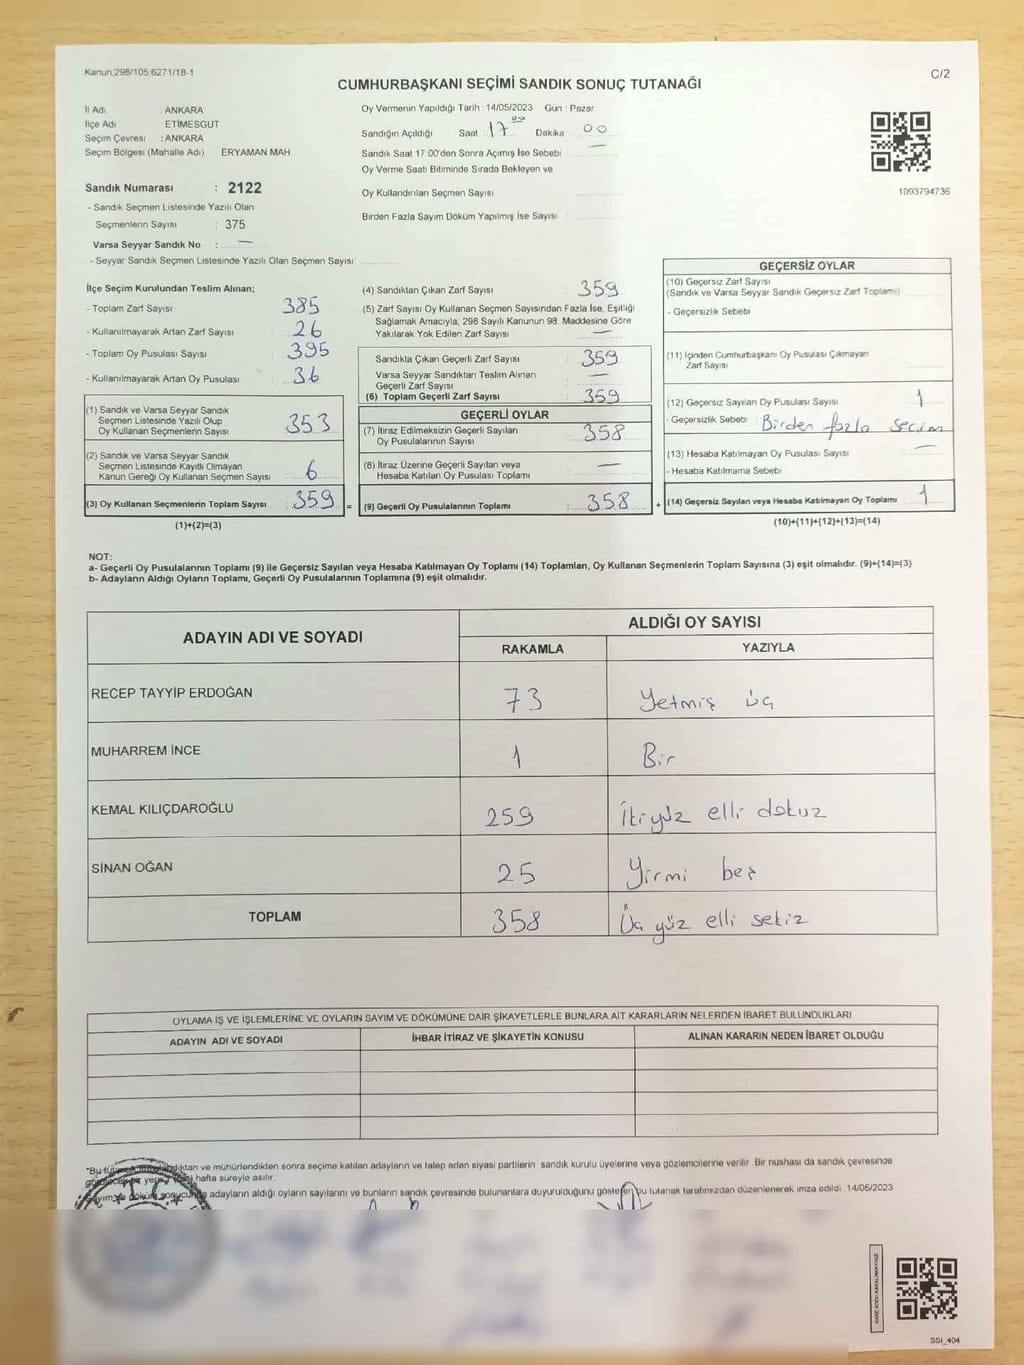 Kanun:298/105;6271/18-1
C/2
CUMHURBAŞKANI SEÇİMİ SANDIK SONUÇ TUTANAĞI
İl Adı : ANKARA
İlçe Adı : ETİMESGUT
Seçim Çevresi : ANKARA
Seçim Bölgesi (Mahalle Adı) : ERYAMAN MAH.
Sandık Numarası : 2122
- Sandık Seçmen Listesinde Yazılı Olan
Seçmenlerin Sayısı : 375
Varsa Seyyar Sandık No : —
- Seyyar Sandık Seçmen Listesinde Yazılı Olan Seçmen Sayısı
Oy Vermenin Yapıldığı Tarih : 14/05/2023 Gün : Pazar
Sandığın Açıldığı Saat : 17 00 Dakika : 00
Sandık Saat 17:00'den Sonra Açılmış İse Sebebi : —
Oy Verme Saati Bitiminde Sırada Bekleyen ve
Oy Kullandırılan Seçmen Sayısı :
Birden Fazla Sayım Döküm Yapılmış İse Sayısı :
1093794736
İlçe Seçim Kurulundan Teslim Alınan;
- Toplam Zarf Sayısı : 385
- Kullanılmayarak Artan Zarf Sayısı : 26
- Toplam Oy Pusulası Sayısı : 395
- Kullanılmayarak Artan Oy Pusulası : 36
(1) Sandık ve Varsa Seyyar Sandık
Seçmen Listesinde Yazılı Olup
Oy Kullanan Seçmenlerin Sayısı : 353
(2) Sandık ve Varsa Seyyar Sandık
Seçmen Listesinde Kayıtlı Olmayan
Kanun Gereği Oy Kullanan Seçmen Sayısı : 6
(3) Oy Kullanan Seçmenlerin Toplam Sayısı : 359 =
(1)+(2)=(3)
(4) Sandıktan Çıkan Zarf Sayısı : 359
(5) Zarf Sayısı Oy Kullanan Seçmen Sayısından Fazla İse, Eşitliği
Sağlamak Amacıyla; 298 Sayılı Kanunun 98. Maddesine Göre
Yakılarak Yok Edilen Zarf Sayısı : —
Sandıkta Çıkan Geçerli Zarf Sayısı : 359
Varsa Seyyar Sandıktan Teslim Alınan
Geçerli Zarf Sayısı : —
(6) Toplam Geçerli Zarf Sayısı : 359
GEÇERLİ OYLAR
(7) İtiraz Edilmeksizin Geçerli Sayılan
Oy Pusulalarının Sayısı : 358
(8) İtiraz Üzerine Geçerli Sayılan veya
Hesaba Katılan Oy Pusulası Toplamı : —
(9) Geçerli Oy Pusulalarının Toplamı : 358 +
GEÇERSİZ OYLAR
(10) Geçersiz Zarf Sayısı
(Sandık ve Varsa Seyyar Sandık Geçersiz Zarf Toplamı)
- Geçersizlik Sebebi :
(11) İçinden Cumhurbaşkanı Oy Pusulası Çıkmayan
Zarf Sayısı :
(12) Geçersiz Sayılan Oy Pusulası Sayısı : 1
- Geçersizlik Sebebi : Birden fazla seçim
(13) Hesaba Katılmayan Oy Pusulası Sayısı : —
- Hesaba Katılmama Sebebi :
(14) Geçersiz Sayılan veya Hesaba Katılmayan Oy Toplamı : 1
(10)+(11)+(12)+(13)=(14)
NOT:
a- Geçerli Oy Pusulalarının Toplamı (9) ile Geçersiz Sayılan veya Hesaba Katılmayan Oy Toplamı (14) Toplamları, Oy Kullanan Seçmenlerin Toplam Sayısına (3) eşit olmalıdır. (9)+(14)=(3)
b- Adayların Aldığı Oyların Toplamı, Geçerli Oy Pusulalarının Toplamına (9) eşit olmalıdır.
ADAYIN ADI VE SOYADI
ALDIĞI OY SAYISI
RAKAMLA YAZIYLA
RECEP TAYYİP ERDOĞAN 73 Yetmiş üç
MUHARREM İNCE 1 Bir
KEMAL KILIÇDAROĞLU 259 İkiyüz elli dokuz
SİNAN OĞAN 25 Yirmi beş
TOPLAM 358 Üç yüz elli sekiz
OYLAMA İŞ VE İŞLEMLERİNE VE OYLARIN SAYIM VE DÖKÜMÜNE DAİR ŞİKAYETLERLE BUNLARA AİT KARARLARIN NELERDEN İBARET BULUNDUKLARI
ADAYIN ADI VE SOYADI İHBAR İTİRAZ VE ŞİKAYETİN KONUSU ALINAN KARARIN NEDEN İBARET OLDUĞU
*Bu ve mühürlendikten sonra seçime katılan adayların ve talep eden siyasi partilerin sandık kurulu üyelerine veya gözlemcilerine verilir. Bir nüshası da sandık çevresinde
hafta süreyle asılır.
Sayım ve döküm sonucunda adayların aldığı oyların sayılarını ve bunların sandık çevresinde bulunanlara duyurulduğunu gösteren bu tutanak tarafımızdan düzenlenerek imza edildi. 14/05/2023
T.C.
SSI_404